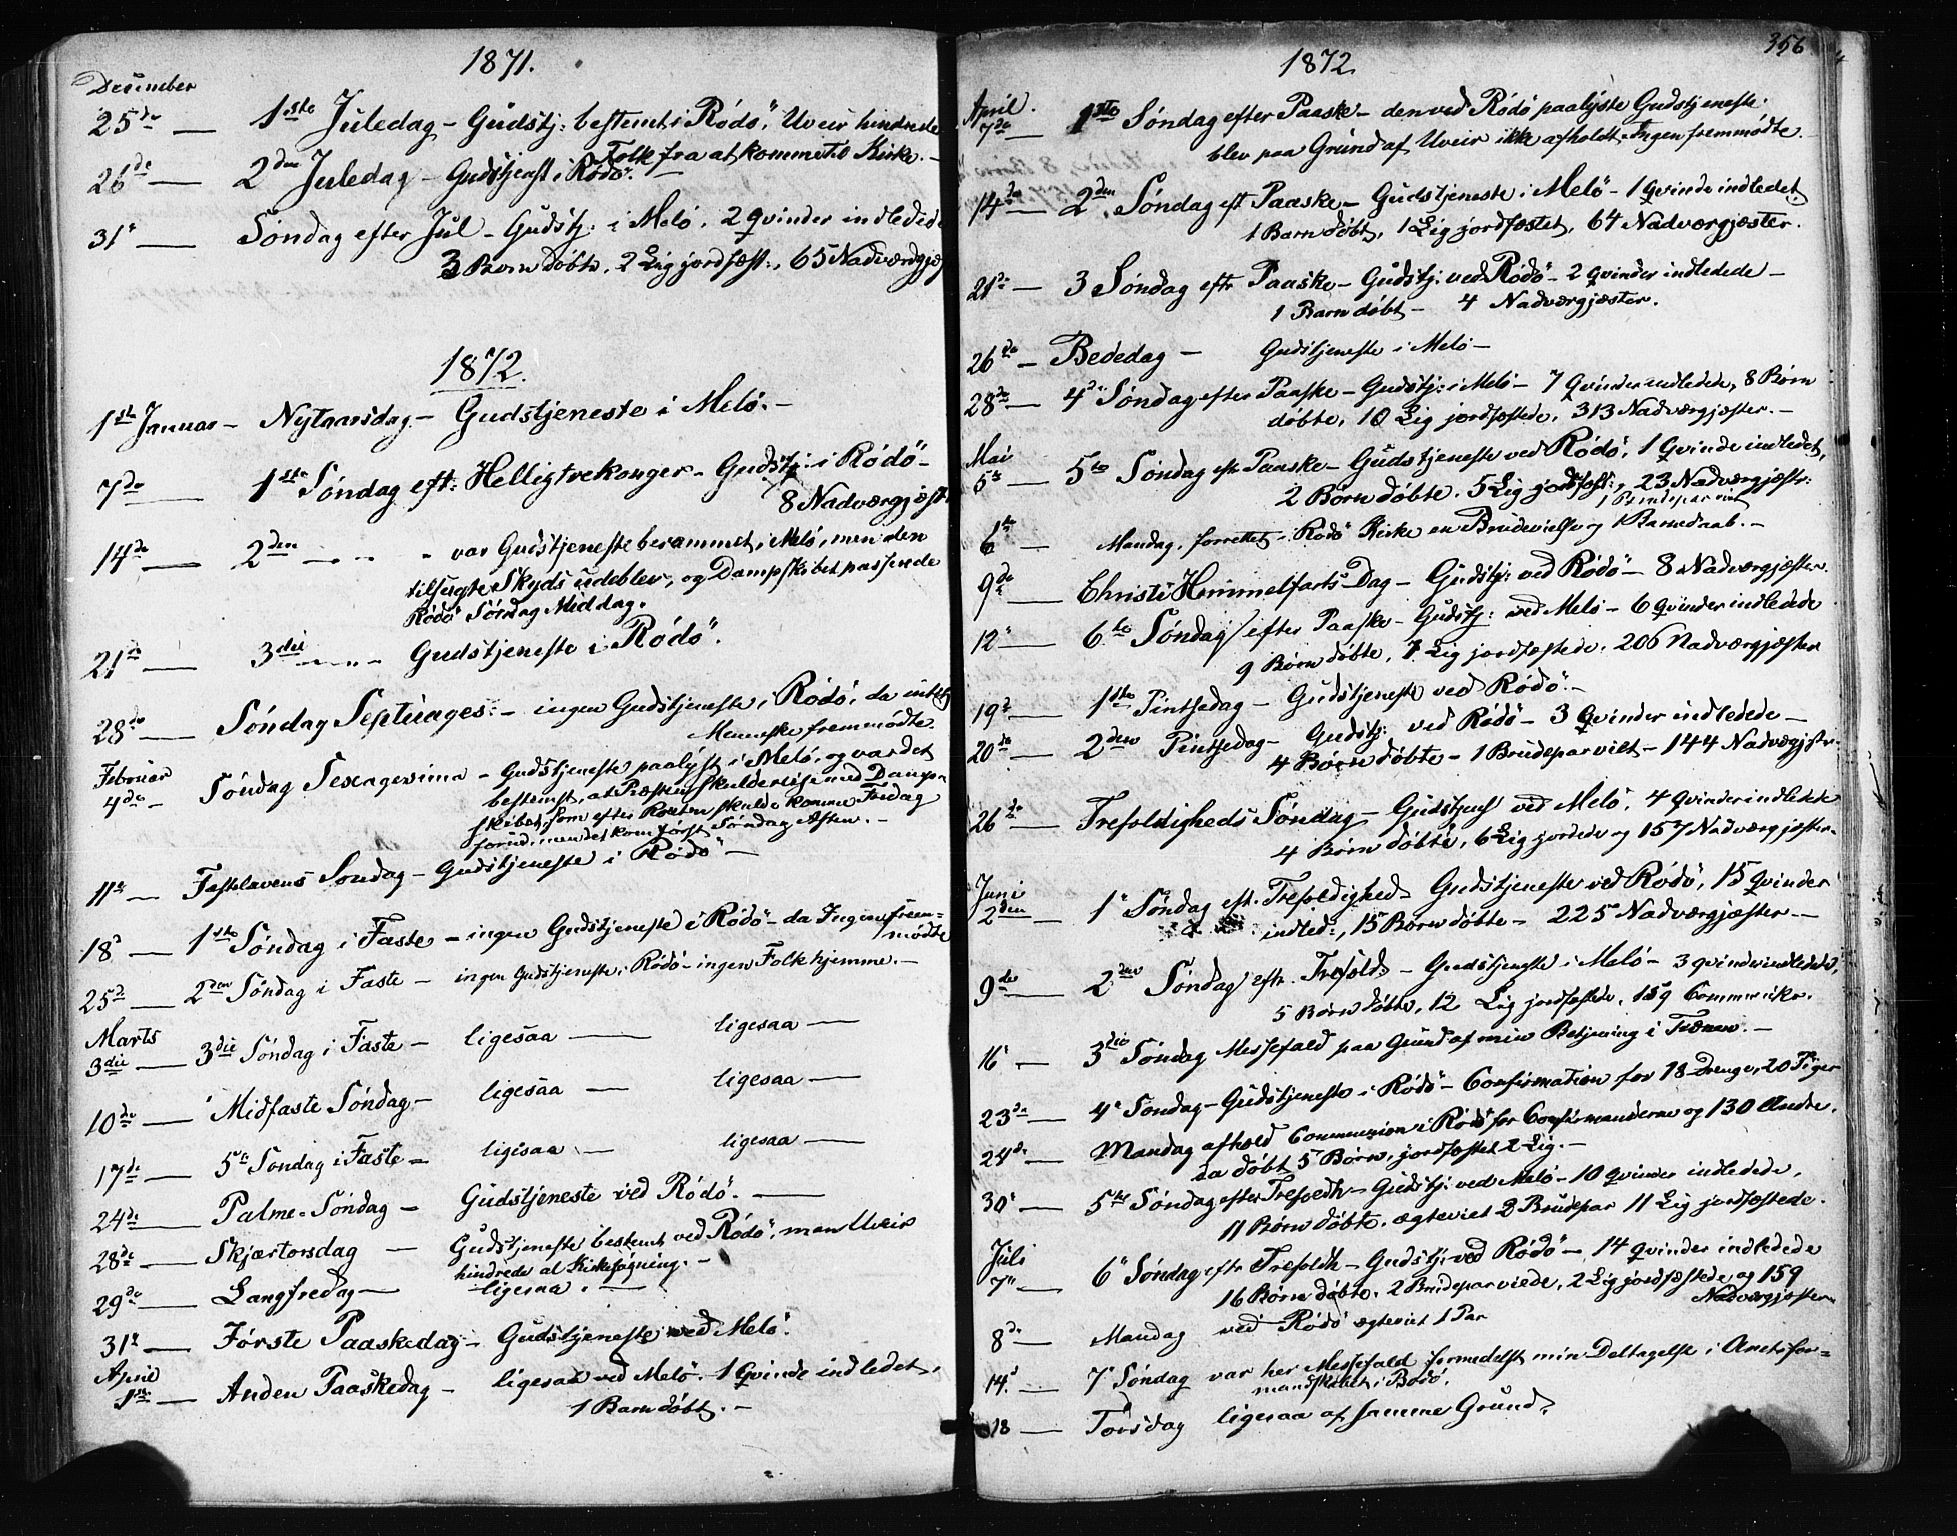 1871.
December
25de — 1ste Juledag – Gudstj: bestemt i Rödö. Uveir hindrede
Folk fra at komme til Kirke. –
26de — 2den Juledag – Gudstjenst i Rödö. –
31te — Söndag efter Jul – Gudstj: i Melö. 2 Qvinder indledede
3 Börn döbte, 2 Lig jordfæst:, 65 Nadverdgjæs
1872.
1ste Januar – Nytaarsdag – Gudstjeneste i Melö. –
7de — 1ste Söndag eft: Helligtrekonger – Gudstj: i Rödö –
8 Nadværgjæst
14de — 2den – „ – „ var Gudstjeneste berammet i Melö, men den
tilsagte Skyds udeblev, og Dampskibet passerede
Rödö Söndag Middag.
21de — 3die – „ – „ Gudstjeneste i Rödö.
28de — Söndag Septuages: – ingen Gudstjeneste i Rödö, da intet
Menneske fremmödte.
Februar
4de – Söndag Sexagesima – Gudstjeneste paalyst i Melö, og var det
bestemt, at Præsten skulde reise med Damp=
skibet, som efter Routen skulde komme Fredag
forud, men det kom först Söndag Aften. –
11te — Fastelavens Söndag – Gudstjeneste i Rödö –
18de — 1ste Söndag i Faste – ingen Gudstjeneste i Rödö – da Ingen frem=
mödte
25de — 2den Söndag i Faste – ingen Gudstjeneste i Rödö – ingen Folk hjemme. –
Marts
3die — 3die Söndag i Faste – ligesaa — ligesaa —
10de — Midfaste Söndag – ligesaa — ligesaa —
17de — 5te Söndag i Faste – ligesaa — ligesaa —
24de — Palme-Söndag – Gudstjeneste ved Rödö. —
28de — Skjærtorsdag – Gudstjeneste bestemt ved Rödö, men Uveir
hindrede al Kirkesögning. –
29de — Langfredag — ligesaa. —
31te — Förste Paaskedag – Gudstjeneste ved Melö.
April
1ste — Anden Paaskedag – ligesaa ved Melö. 1 Qvinde indledet.
1 Barn döbt. –
356
1872
April.
7de — 1ste Söndag efter Paaske – den ved Rödö paalyste Gudstjeneste
blev paa Grund af Uveir ikke afholdt. Ingen fremmödte
14de — 2den Söndag eft Paaske – Gudstjeneste i Melö – 1 Qvinde indledet
1 Barn döbt, 1 Lig jordfæstet, 64 Nadværgjæster.
21de — 3 Söndag eftr Paaske – Gudstj: ved Rödö – 2 Qvinder indledede –
1 Barn döbt – 4 Nadværgjæster.
26de – Bededag – Gudstjeneste i Melö –
28de — 4de Söndag efter Paaske – Gudstj: i Melö – 7 Qvinder indledede, 8 Börn
döbte, 10 Lig jordfæstede, 313 Nadværgjæster. –
Mai
5te — 5te Söndag eft Paaske – Gudstjeneste ved Rödö, 1 Qvinde indledet,
2 Börn döbte. 5 Lig jordfæst:, 23 Nadværgjæstr:
1 Brudepar viet
6te — Mandag, forrettet i Rödö Kirke en Brudevielse og 1 Barnedaab. –
9de — Christi Himmelfarts Dag – Gudstj: ved Rödö – 8 Nadværgjæster.
12te — 6te Söndag efter Paaske – Gudstj: ved Melö – 6 Qvinder indledede
9 Börn döbte, 7 Lig jordfæstede. 206 Nadværgjæster
19de — 1ste Pintsedag – Gudstjeneste ved Rödö. –
20de — 2den Pintsedag – Gudstj: ved Rödö – 3 Qvinder indledede –
4 Börn döbte – 1 Brudepar viet – 144 Nadværgjstr.
26de — Trefoldigheds Söndag – Gudstjenst ved Melö. 4 Qvinder indledede
4 Börn döbte, 6 Lig jordede og 157 Nadværgjæster.
Juni
2den — 1te Söndag eft. Trefoldighed – Gudstjeneste ved Rödö, 15 Qvinder
indled:, 15 Börn döbte – 225 Nadværgjæster –
9de — 2den Söndag eftr. Trefold: – Gudstjeneste i Melö – 3 Qvinder indledede,
5 Börn döbte, 12 Lig jordfæstede, 159 Communikr.
16de — 3die Söndag Messefald paa Grund af min Betjening i Trænen. –
23de — 4de Söndag – Gudstjeneste i Rödö – Confirmation for 18 Drenge, 20 Piger
24de — Mandag afholdt Communion i Rödö for Confirmanderne og 130 Andre.
da döbt 5 Börn, jordfæstet 2 Lig. –
30te — 5te Söndag efter Trefoldh – Gudstj: ved Melö – 10 Qvinder indledede,
11 Börn döbte. ægteviet 2 Brudepar 11 Lig jordfæstede.
Juli
7de — 6te Söndag eftr Trefoldh – Gudstj: ved Rödö –, 14 Qvinder indledede
16 Börn döbte, 2 Brudepar viede, 2 Lig jordfæstede og 159
Nadværgjæster
8de — Mandag ved Rödö ægteviet 1 Par
14de — 7de Söndag var her Messefald formedelst min Deltagelse i Amtsfor=
mandskabet i Bodö.
18 — Torsdag ligesaa af samme Grund.